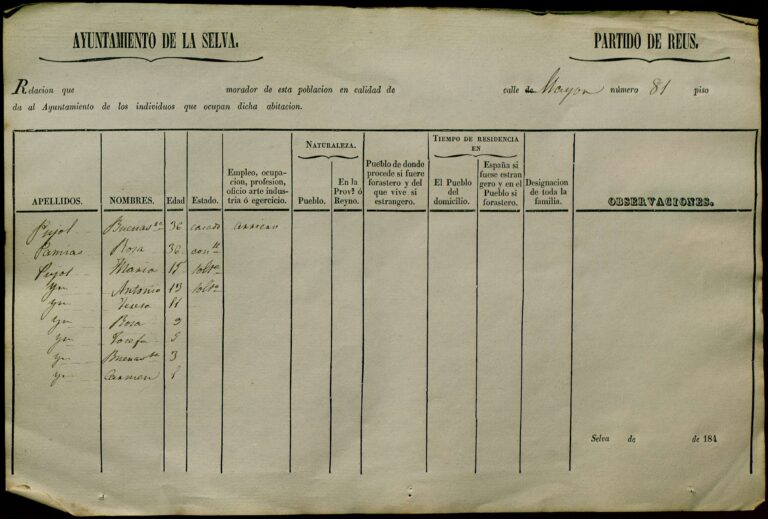 AYUNTAMIENTO DE LA SELVA.
PARTIDO DE REUS.
Relacion que morador de esta poblacion en calidad de calle de Mayor número 81 piso
da al Ayuntamiento de los individuos que ocupan dicha abitacion.
APELLIDOS.
NOMBRES.
Edad
Estado.
Empleo, ocupa-
cion, profesion,
oficio arte indus-
tria ó egercicio.
NATURALEZA.
Pueblo.
En la
Provª ó
Reyno.
Pueblo de donde
procede si fuere
forastero y del
que vive si
estrangero.
TIEMPO DE RESIDENCIA
EN
El Pueblo
del
domicilio.
España si
fuese estran
gero y en el
Pueblo si
forastero.
Designacion
de toda la
familia.
OBSERVACIONES.
Pujol Buenavª 36 casado arriero
Pamias Rosa 36 conte
Pujol Maria 15 solta
Yn Antonio 13 solto
Yn Teresa 11
Yn Rosa 9
Yn Josefa 5
Yn Buenavª 3
Yn Carmen 1
Selva de de 184